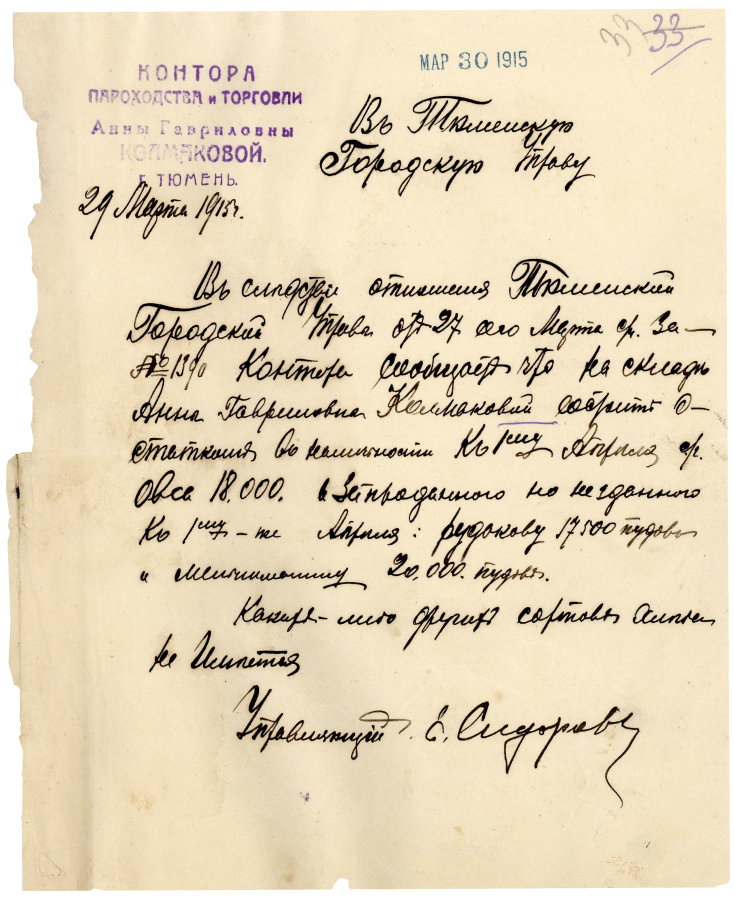 33 33
МАР 30 1915
КОНТОРА
ПАРОХОДСТВА и ТОРГОВЛИ
Анны Гавриловны
КОЛМАКОВОЙ.
г. ТЮМЕНЬ.
29 Марта 1915 г.
Въ Тюменскую
Городскую Управу
Въ следствіи отношенія Тюменской
Городской Управы отъ 27 сего Марта ср. За
№ 1390 Контора сообщаетъ что на складъ
Анны Гавриловны Колмаковой состоитъ о-
статкомъ въ наличности Къ 1му Апрѣля ср.
Овса 18.000. и Запроданного но не зданного
Къ 1му - же Апрѣля: рудакову 17500 пудовъ
и 20.000. пудовъ.
Какихъ-либо другихъ сортовъ хлѣба
не Имѣется
Управляющій Е. Сидоровъ